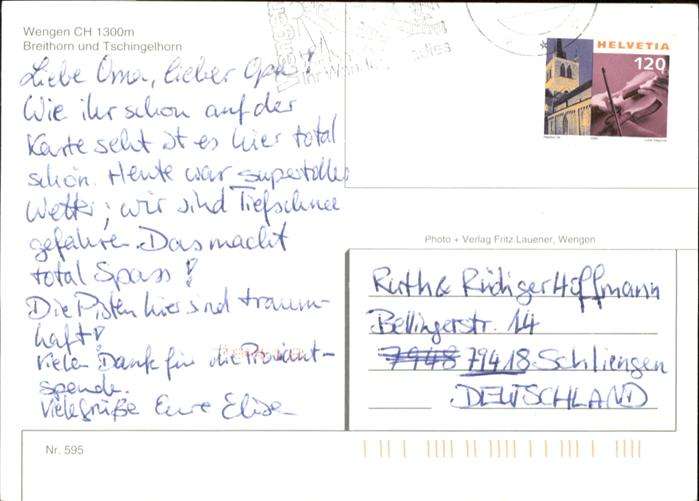 Wengen CH 1300m
Breithorn und Tschingelhorn
Liebe Oma, lieber Opa!
Wie ihr schon auf der
Karte seht ist es hier total
schön. Heute war supertolles
Wetter; wir sind Tiefschnee
gefahren. Das macht
total Spass!
Die Pisten hier sind traum-
haft!
Vielen Dank für die Proviant-
spende.
Viele Grüße Eure Elisa
HELVETIA
120
Photo + Verlag Fritz Lauener, Wengen
Ruth & Rüdiger Höffmann
Bellingerstr. 14
7948 79418 Schliengen
DEUTSCHLAND
Nr. 595